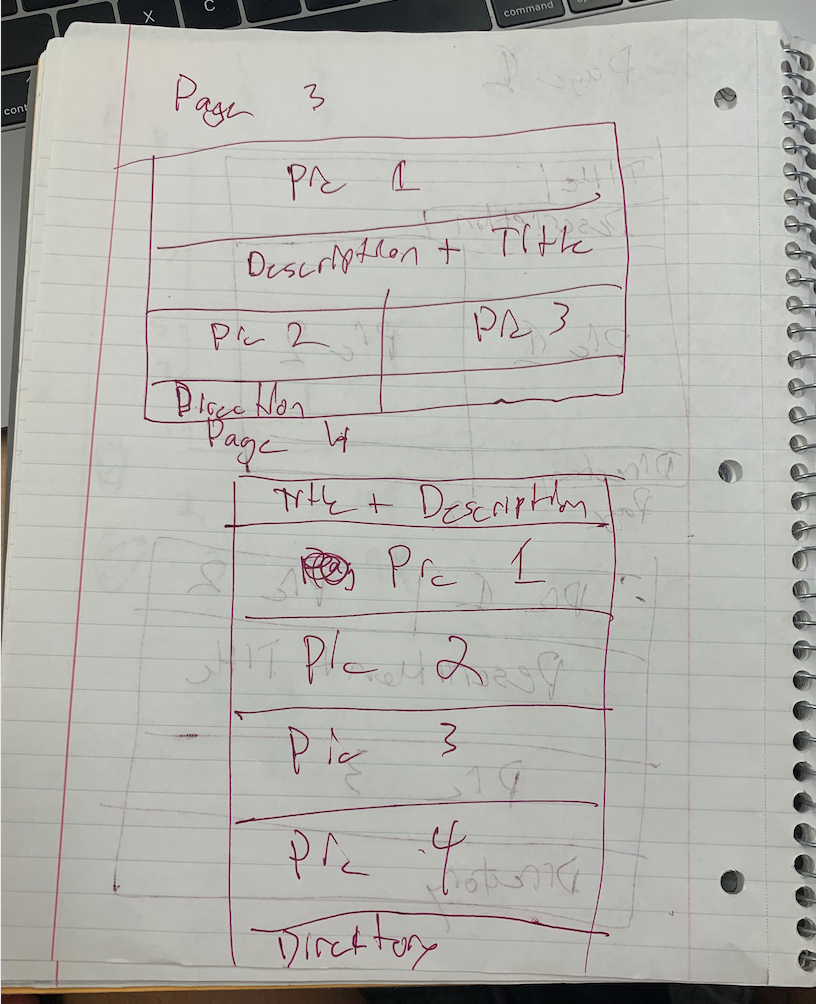 X C command
cont
Page 3
Pic 1
Description + Title
Pic 2 Pic 3
Direction
Page 4
Title + Description
Pic 1
Pic 2
Pic 3
Pic 4
Directory